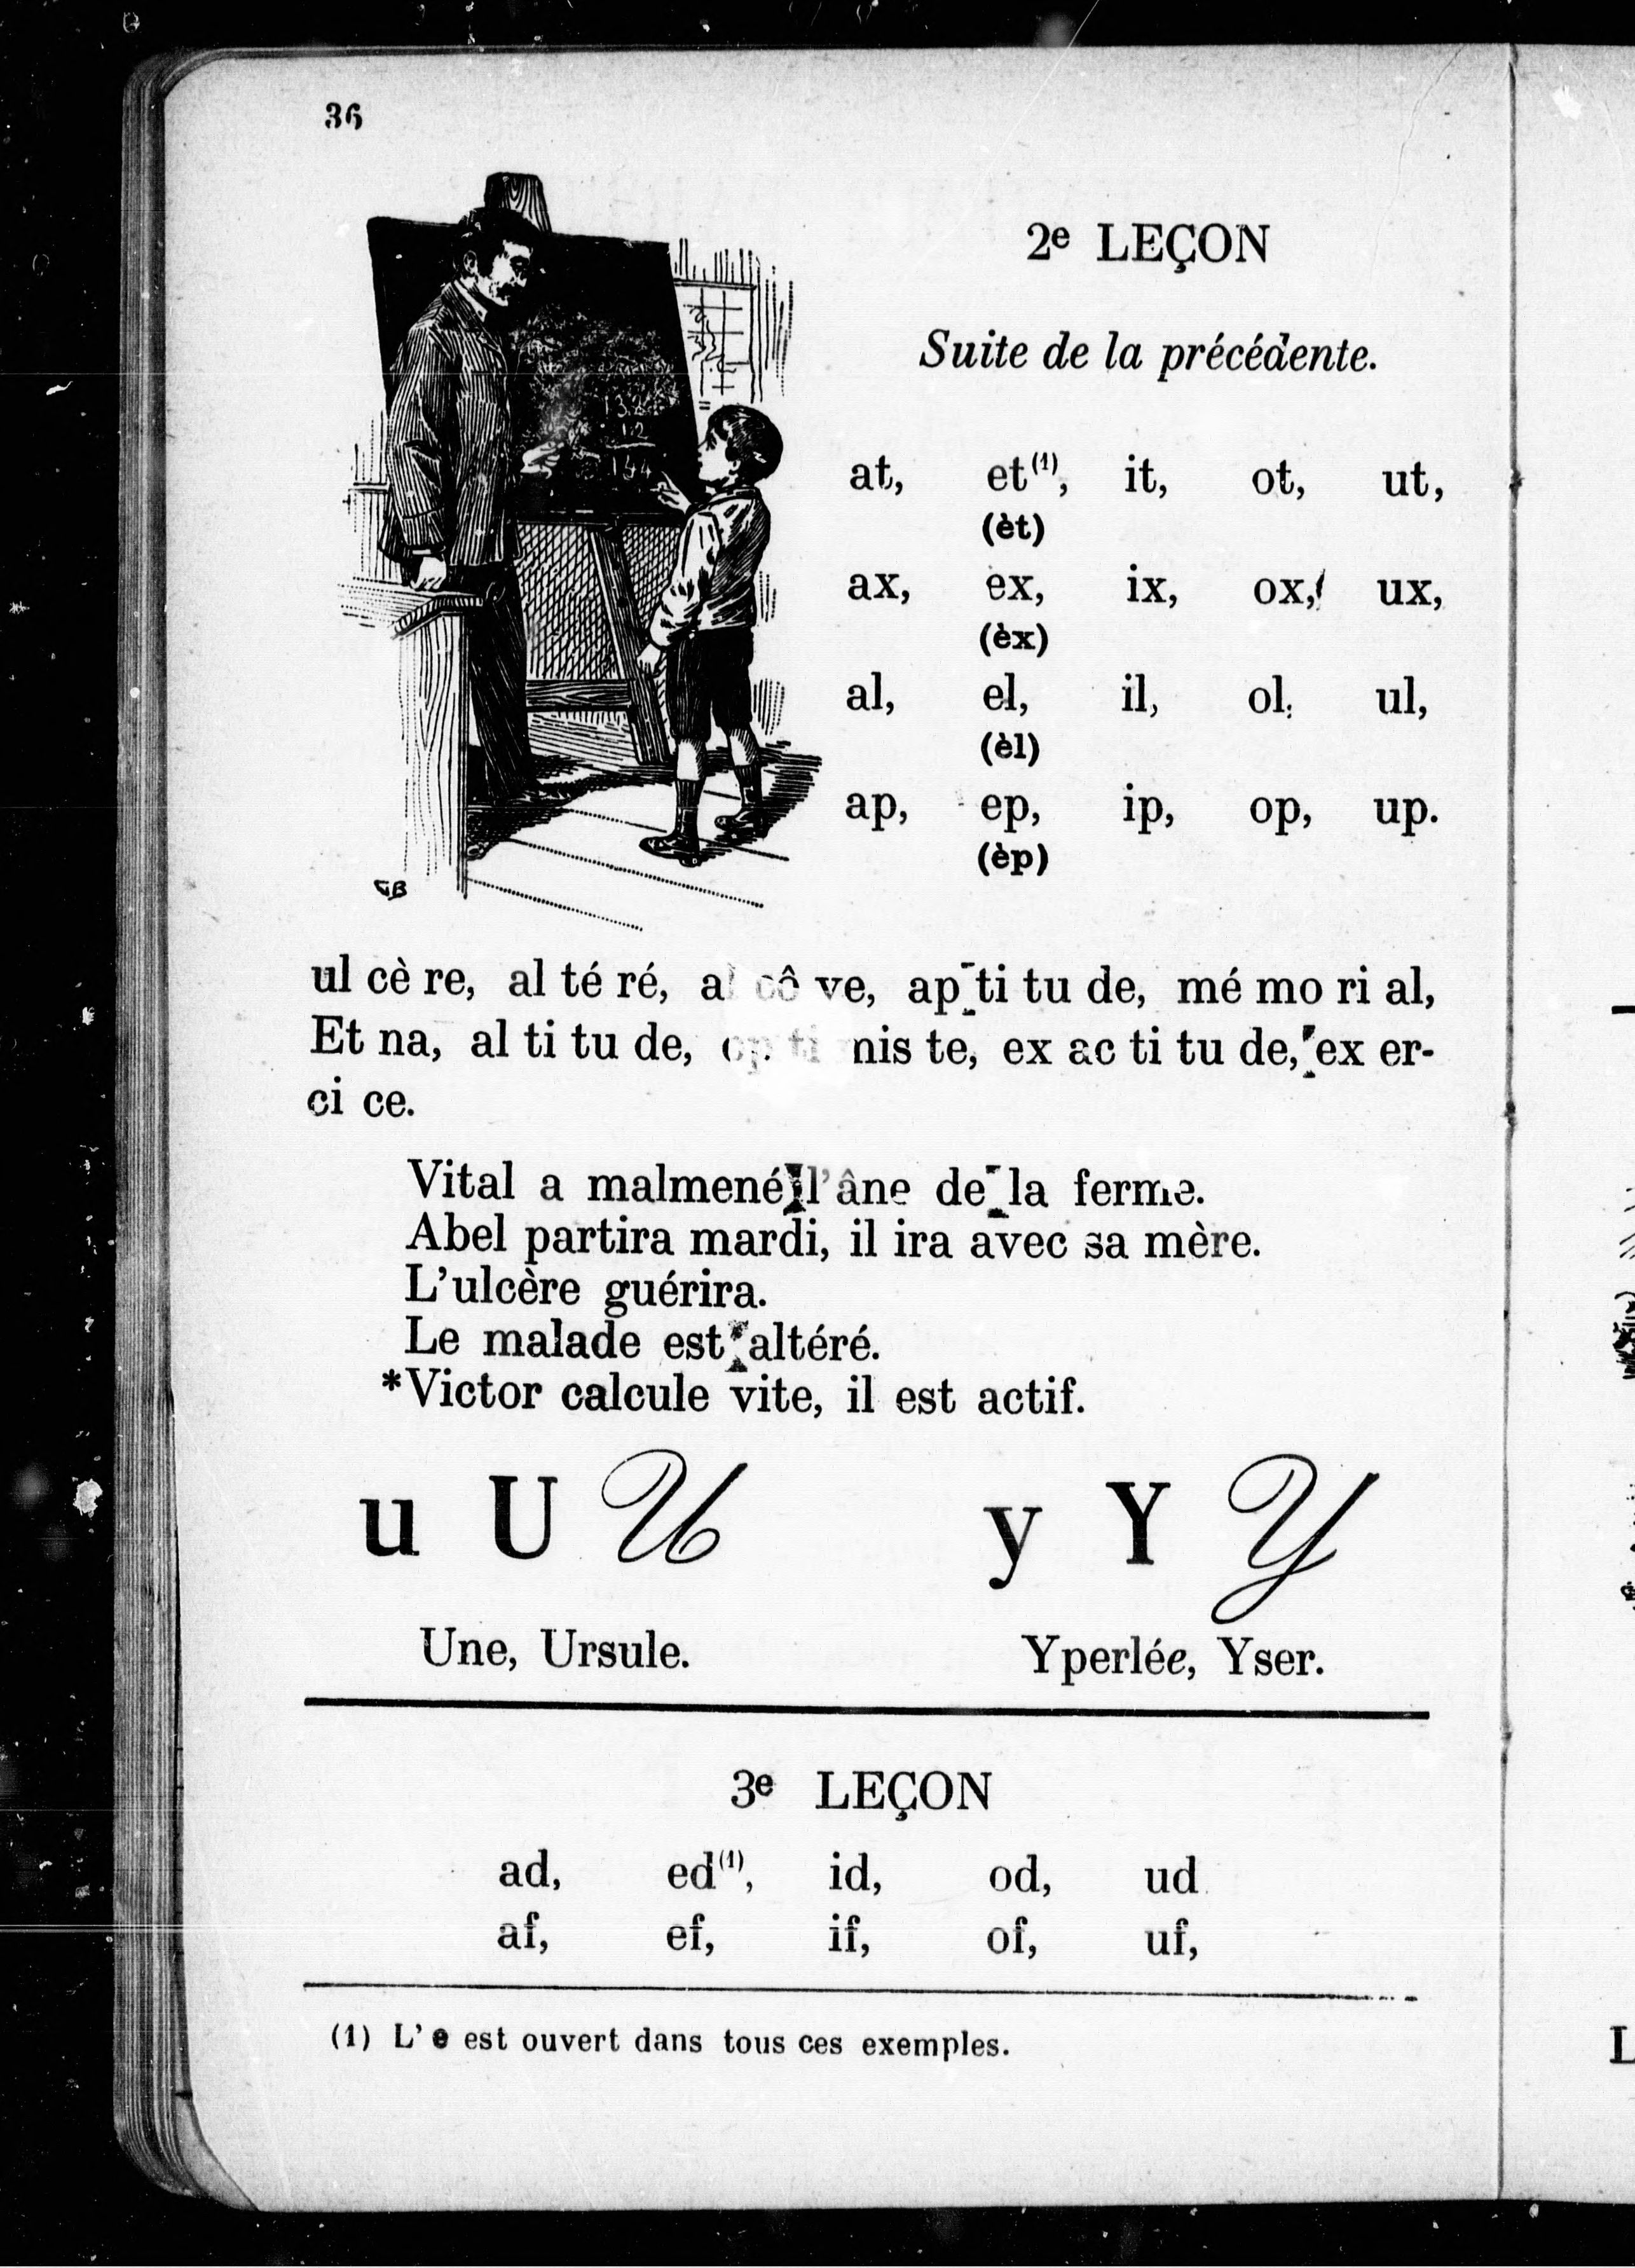 36
2e LEÇON
Suite de la précédente.
at, et(1), it, ot, ut,
(èt)
ax, ex, ix, ox, ux,
(èx)
al, el, il, ol, ul,
(èl)
ap, ep, ip, op, up.
(èp)
GB
ul cè re, al té ré, al cô ve, ap ti tu de, mé mo ri al,
Et na, al ti tu de, op ti mis te, ex ac ti tu de, ex er-
ci ce.
Vital a malmené l'âne de la ferme.
Abel partira mardi, il ira avec sa mère.
L'ulcère guérira.
Le malade est altéré.
*Victor calcule vite, il est actif.
u U U y Y Y
Une, Ursule. Yperlée, Yser.
3e LEÇON
ad, ed(1), id, od, ud
af, ef, if, of, uf,
(1) L'e est ouvert dans tous ces exemples.